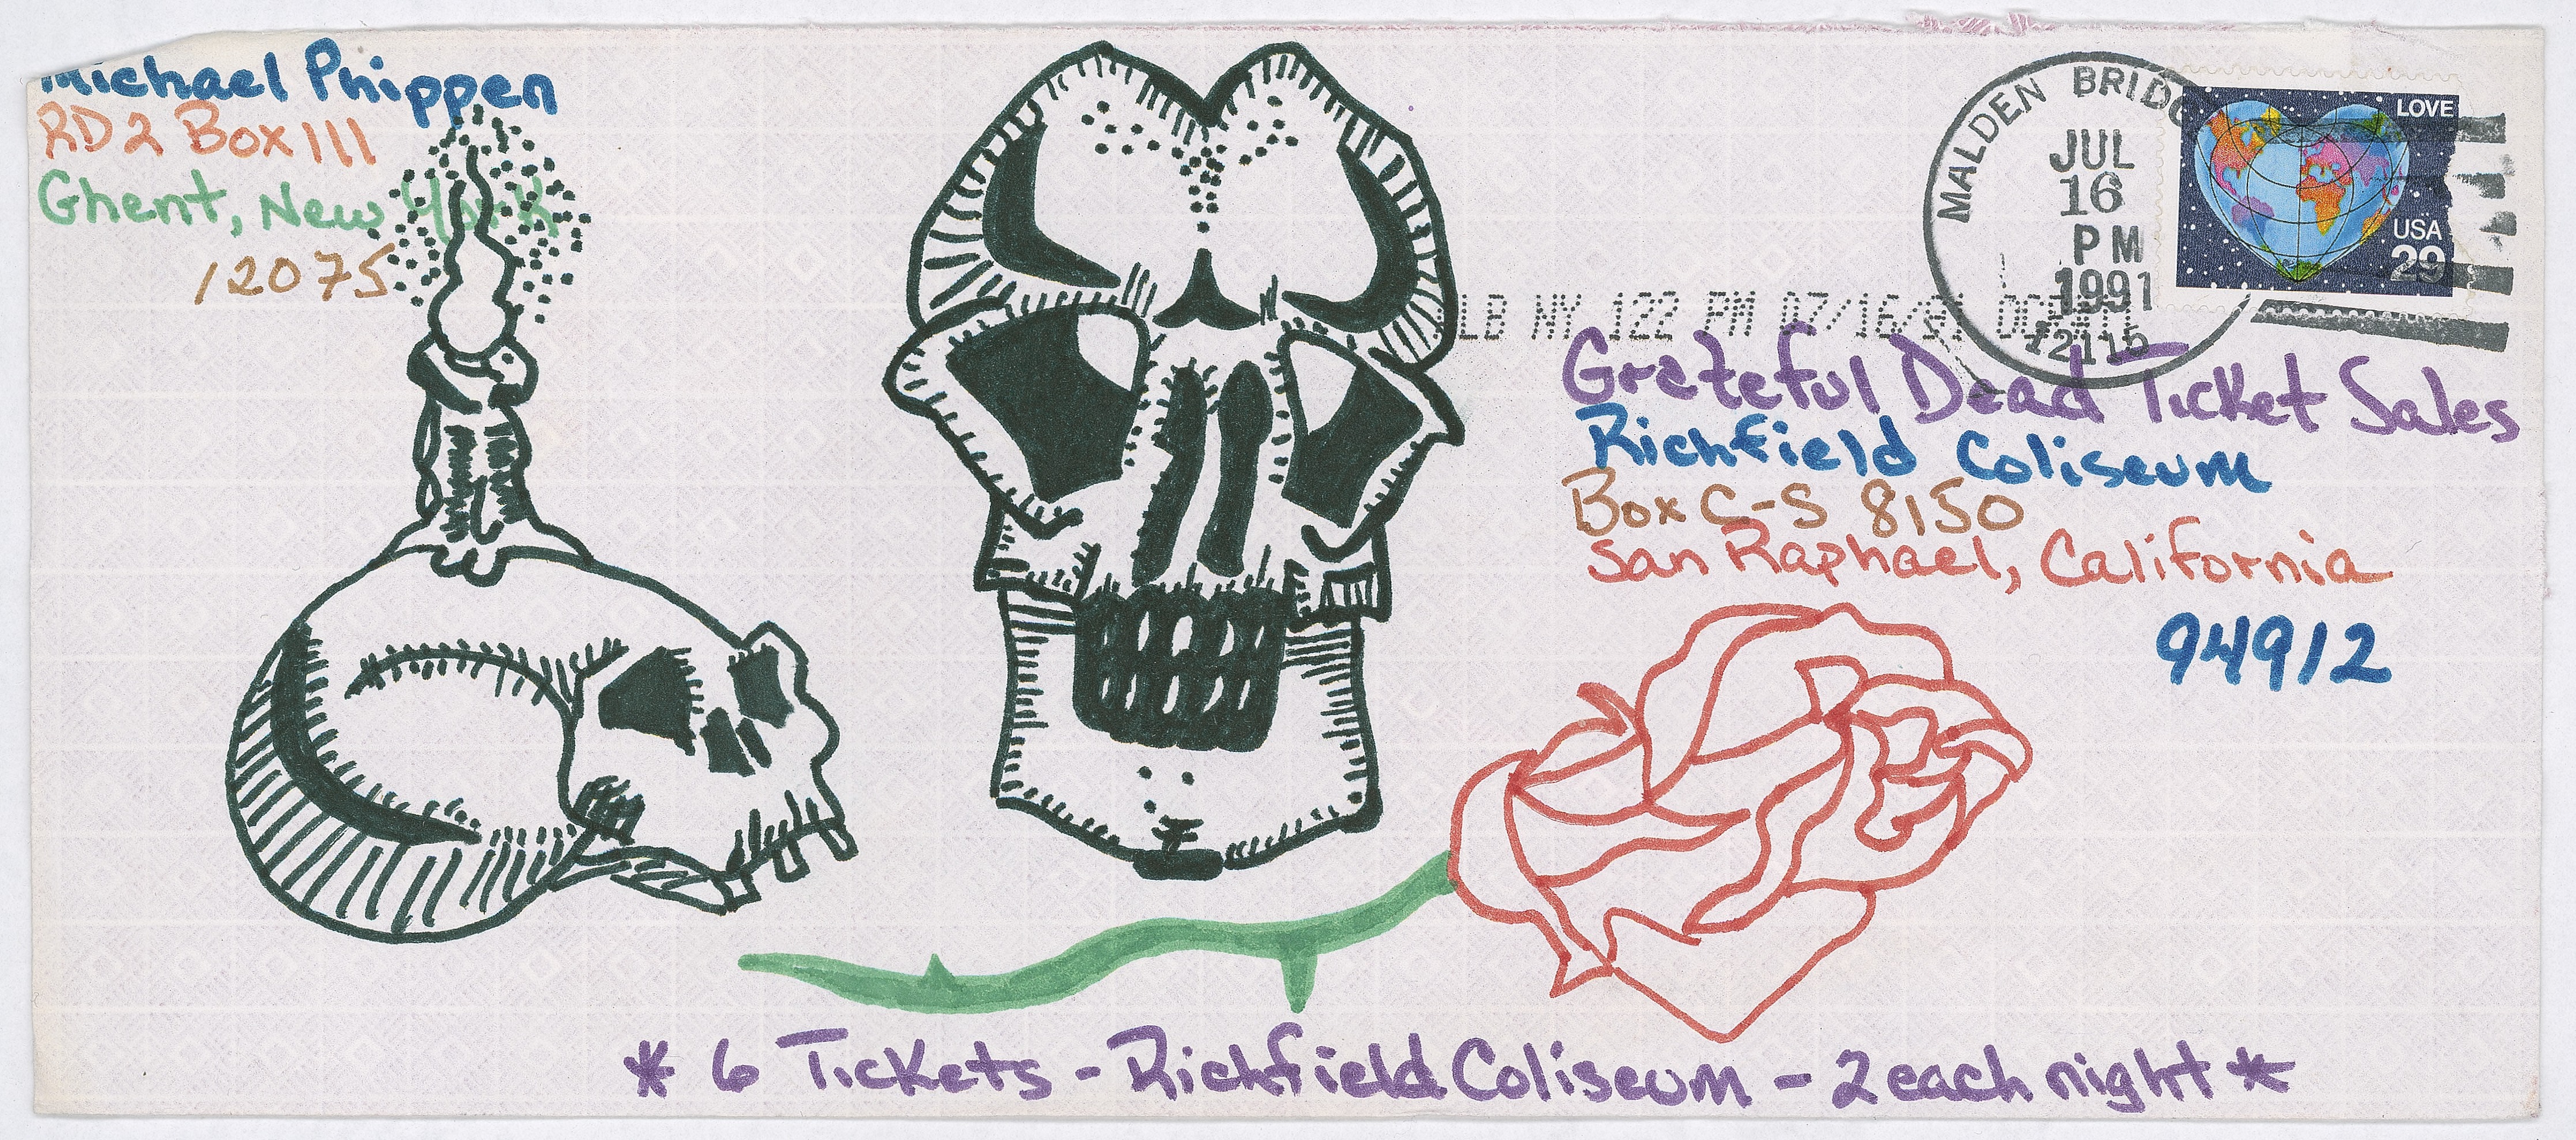 Michael Phippen
RD2 Box 111
Ghent, New York
12075
MALDEN BRIDG
JUL
16
PM
1991
12115
LOVE
USA
29
LB NY 122 PM 07/16/91
Grateful Dead Ticket Sales
Richfield Coliseum
Box C-S 8150
San Raphael, California
94912
* 6 Tickets - Richfield Coliseum - 2 each night *